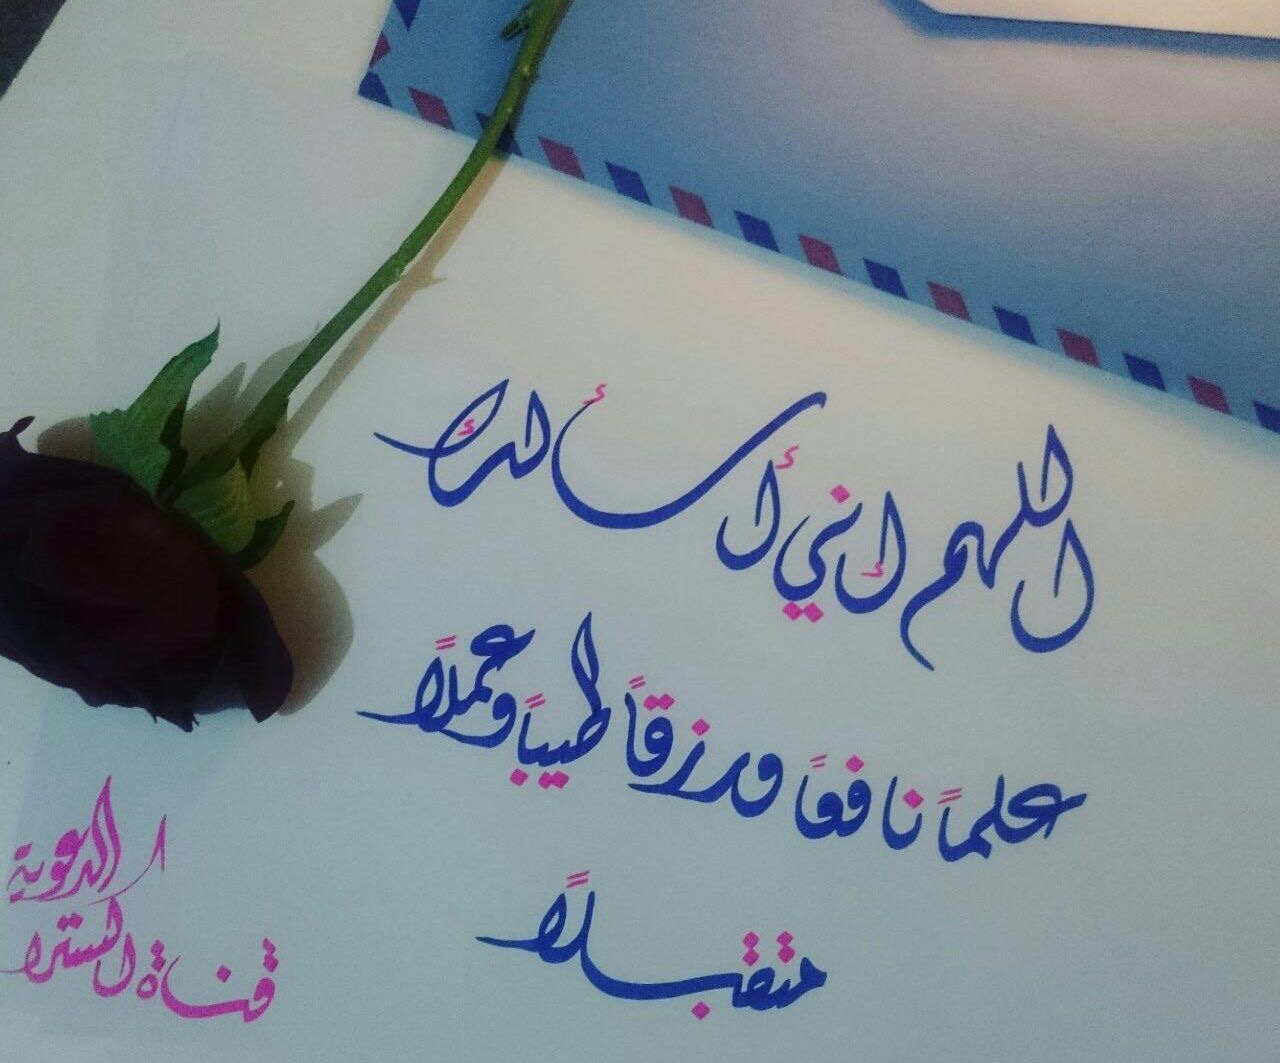 اللهم إني أسألك
علماً نافعاً ورزقاً طيباً وعملاً
متقبلاً
قناة
الدعوية